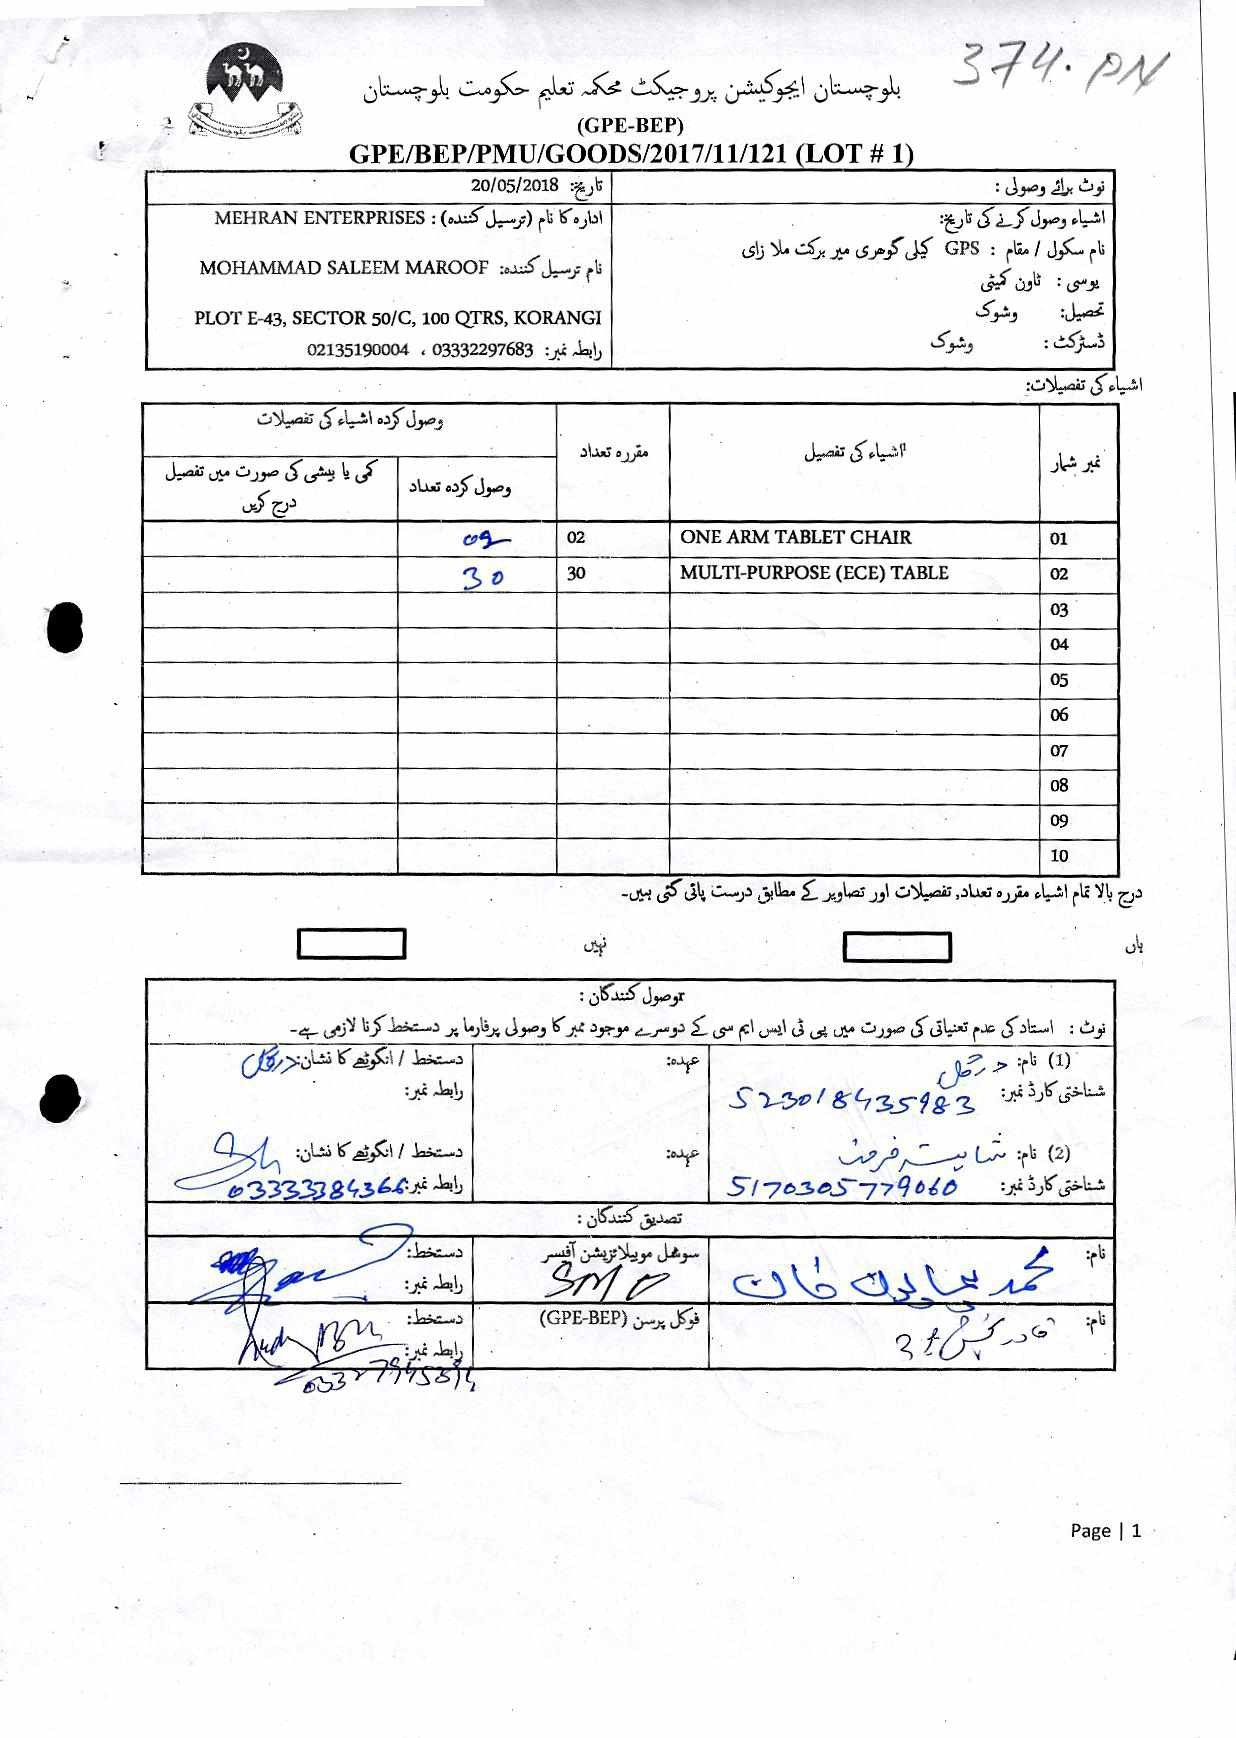 374. PN
بلوچستان ایجوکیشن پروجیکٹ محکمہ تعلیم حکومت بلوچستان
(GPE-BEP)
GPE/BEP/PMU/GOODS/2017/11/121 (LOT # 1)
نوٹ برائے وصولی :
تاریخ: 20/05/2018
اشیاء وصول کرنے کی تاریخ:
نام سکول / مقام : GPS کیلی گوھری میر برکت ملا زای
یوسی : ٹاون کمیٹی
تحصیل: وشوک
ڈسٹرکٹ : وشوک
ادارہ کا نام (ترسیل کنندہ) : MEHRAN ENTERPRISES
نام ترسیل کنندہ: MOHAMMAD SALEEM MAROOF
PLOT E-43, SECTOR 50/C, 100 QTRS, KORANGI
رابطہ نمبر: 03332297683 ، 02135190004
اشیاء کی تفصیلات:
نمبر شمار اشیاء کی تفصیل مقررہ تعداد وصول کردہ اشیاء کی تفصیلات
وصول کردہ تعداد کمی یا بیشی کی صورت میں تفصیل درج کریں
01 ONE ARM TABLET CHAIR 02 02
02 MULTI-PURPOSE (ECE) TABLE 30 30
03
04
05
06
07
08
09
10
درج بالا تمام اشیاء مقررہ تعداد, تفصیلات اور تصاویر کے مطابق درست پائی گئی ہیں۔
ہاں نہیں
وصول کنندگان :
نوٹ : استاد کی عدم تعنیاتی کی صورت میں پی ٹی ایس ایم سی کے دوسرے موجود ممبر کا وصولی پرفارما پر دستخط کرنا لازمی ہے۔
(1) نام: عہدہ: دستخط / انگوٹھے کا نشان:
شناختی کارڈ نمبر: 523018435983 رابطہ نمبر:
(2) نام: عہدہ: دستخط / انگوٹھے کا نشان:
شناختی کارڈ نمبر: 5170305779060 رابطہ نمبر: 03333384366
تصدیق کنندگان :
نام: محمد خان سوشل موبیلائزیشن آفسر دستخط:
SMO رابطہ نمبر:
نام: قادر فوکل پرسن (GPE-BEP) دستخط:
رابطہ نمبر:
Page | 1